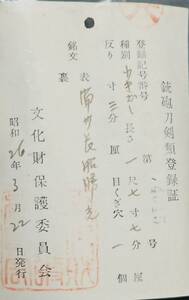 銃砲刀剣類登録証
登録記号番号 第 号
種別 わきざし 長さ 一尺七寸七分 厘
反り 寸三分 厘 目くぎ穴 一個
銘文 表 備州長船勝光
裏
文化財保護委員会
昭和26年3月22日発行